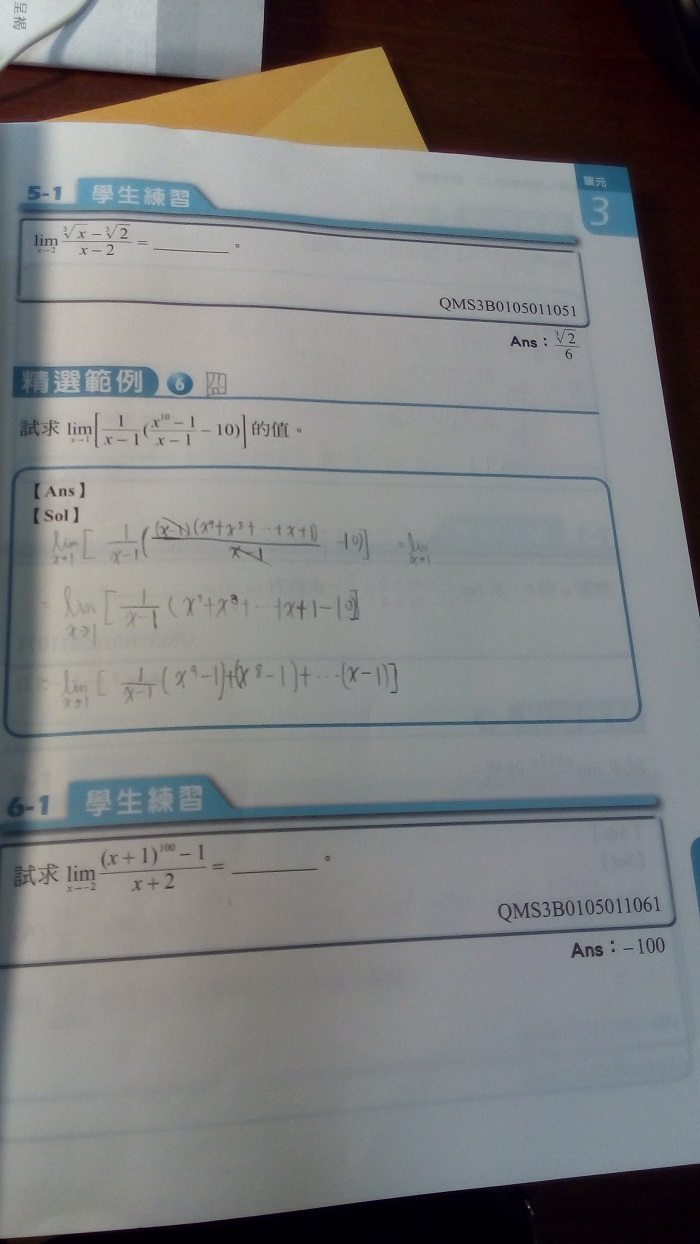 呈揭
單元
3
5-1 學生練習
lim x→2 (∛x − ∛2)/(x − 2) = ________。
QMS3B0105011051
Ans：∛2/6
精選範例 6 囧
試求 lim x→1 [1/(x−1) ((x¹⁰−1)/(x−1) − 10)] 的值。
【Ans】
【Sol】
lim x→1 [ 1/(x−1) ( (x−1)(x⁹+x⁸+…+x+1)/(x−1) −10)] = lim x→1
= lim x→1 [ 1/(x−1) (x⁹+x⁸+…+x+1−10)]
= lim x→1 [ 1/(x−1) (x⁹−1)+(x⁸−1)+…(x−1)]
6-1 學生練習
試求 lim x→−2 ((x+1)¹⁰⁰ − 1)/(x+2) = ________。
QMS3B0105011061
Ans：−100